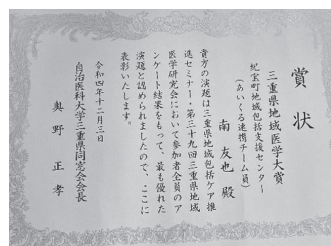 賞状
三重県地域医学大賞
紀宝町地域包括支援センター
(あいくる連携チーム員)
南 友也 殿
貴方の演題は三重県地域包括ケア推
進セミナー・第三十九回三重県地域
医学研究会において参加者全員のア
ンケート結果をもって、最も優れた
演題と認められましたので、ここに
表彰いたします。
令和四年十二月三日
自治医科大学三重県同志会会長
奥野 正孝